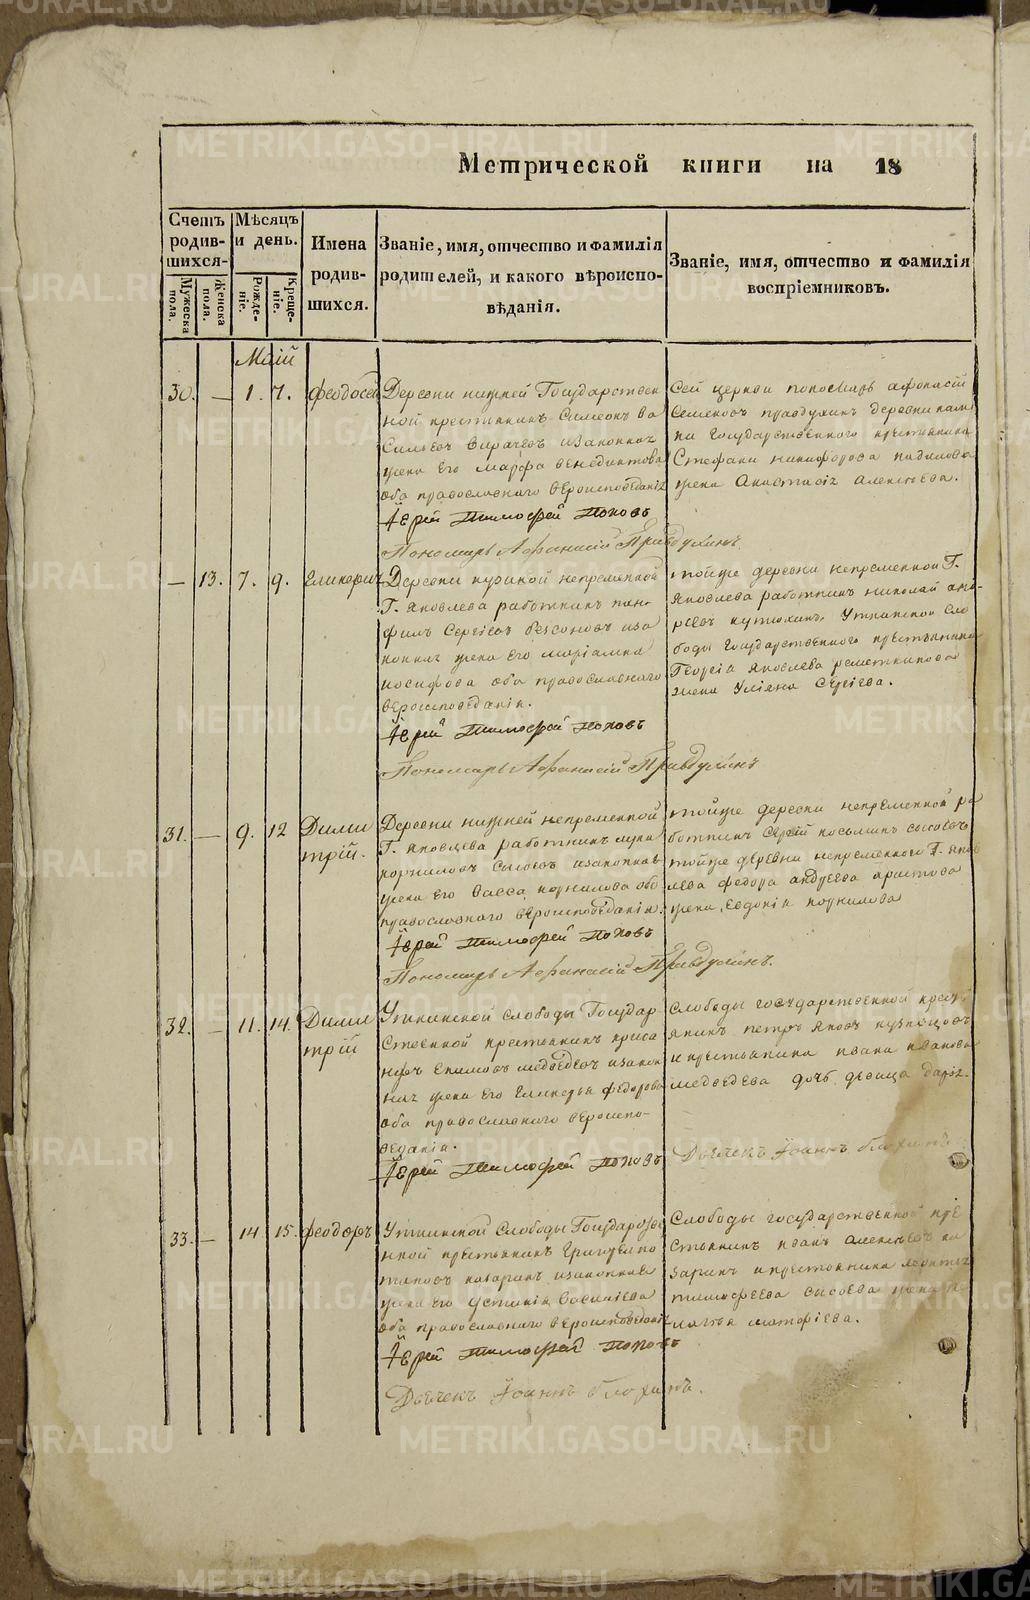 Метрической книги на 18
Счетъ родив-шихся.
Мѣсяцъ и день.
Имена родив-шихся.
Званіе, имя, отчество и фамилія родителей, и какого вѣроиспо-вѣданія.
Званіе, имя, отчество и фамилія воспріемниковъ.
Мужеска пола.
Женска пола.
Рожде-ніе.
Креще-ніе.
Маій
30. — 1. 7. феодосей
Деревни нижней Государствен
ной крестьянинъ Симеонъ Ва
сильевъ изаконная
жена Его Марфа венедиктова
оба православнаго вѣроисповеданія
Іерей Тимофей Поповъ
Пономарь Афанасій Правдухинъ
Сей церкви пономарь афонасій
Семеновъ правдухинъ деревни
Государственного крестьянина
Стефана никифорова
жена Анастасія алексѣева.
— 13. 7. 9.
Деревни непременной
Г. Яковлева работникъ пан-
филъ Сергѣевъ иза
конная жена его маріамна
иосифова оба православнаго
вѣроисповеданія.
Іерей Тимофей Поповъ
Пономарь Афанасій Правдухинъ
тойже деревни непременной Г.
Яковлева работникъ николай анд-
реевъ Уткинской сло
боды Государственного крестьянина
Георгія Яковлева
жена Уліяна Сергіева.
31. — 9. 12 Дими
трій.
Деревни нижней непременной
Г. яковлева работникъ лука
корниловъ Сысоевъ изаконная
жена Его Васса корнилова оба
православнаго вѣроисповѣданія.
Іерей Тимофей Поповъ
Пономарь Афанасій Правдухинъ.
тойже деревни непременной ра
ботникъ Сергій косьминъ сысоевъ
тойже деревни непременного Г. яков
лева федора андреева аристова
жена, Евдокія корнилова
32. — 11. 14. Дими
трій
Уткинской слободы Государ
ственной крестьянинъ
екимовъ медведевъ изакон
ная жена Его Гликерья федорова
оба православнаго вѣроиспо-
веданія.
Іерей Тимофей Поповъ
Слободы государственной крест
янинъ петръ яковл кузнецовъ
и крестьянина ивана иванова
медведева дочь девица дарія.
Дьячекъ Іоаннъ
33. — 14. 15. феодоръ
Уткинской Слободы Государстве
нной крестьянинъ Григорей по
таповъ назаринъ изаконная
жена его Устинія Василіева
оба православнаго вѣроисповеданія
Іерей Тимофей Поповъ
Дьячекъ Іоаннъ
Слободы государственной кре
стьянинъ иванъ алексѣевъ на
заринъ икрестьянина леонтія
тимофеева сысоева жена пе
лагея
METRIKI.GASO-URAL.RU